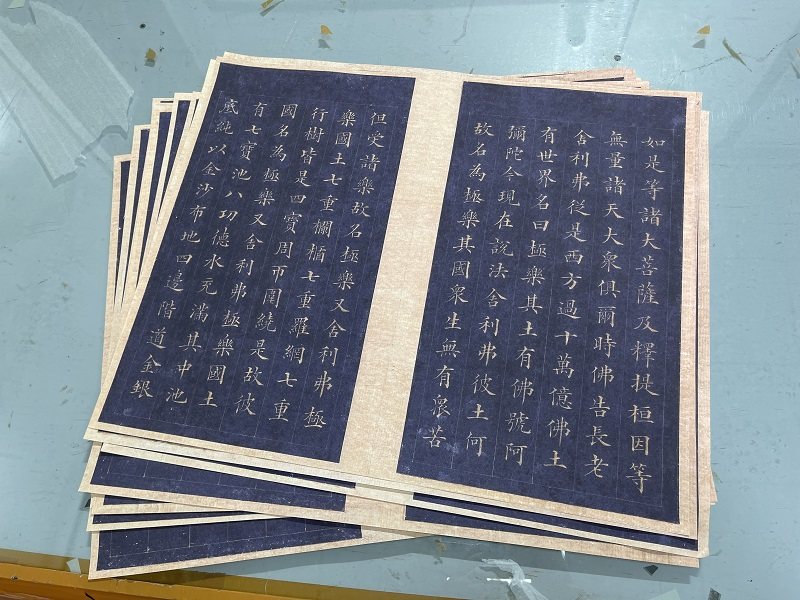 如是等諸大菩薩及釋提桓因等
無量諸天大衆俱爾時佛告長老
舍利弗從是西方過十萬億佛土
有世界名曰極樂其土有佛號阿
彌陀今現在説法舍利弗彼土何
故名為極樂其國衆生無有衆苦
但受諸樂故名極樂又舍利弗極
樂國土七重欄楯七重羅網七重
行樹皆是四寳周帀圍繞是故彼
國名為極樂又舍利弗極樂國土
有七寳池八功德水充滿其中池
底純以金沙布地四邊階道金銀